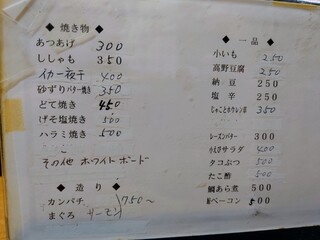 ◆ 焼き物 ◆
あつあげ 300
ししゃも 350
イカ一夜干 400
砂ずりバター焼き 350
どて焼き 450
げそ塩焼き 500
ハラミ焼き 500
その他 ホワイトボード
◆ 造り ◆
カンパチ
まぐろ サーモン 750〜
◆ 一品 ◆
小いも 250
高野豆腐 250
納豆 250
塩辛 250
じゃことホウレン草 350
レーズンバター 300
サラダ 400
タコぶつ 500
たこ酢 500
鯛あら煮 500
ベーコン 500